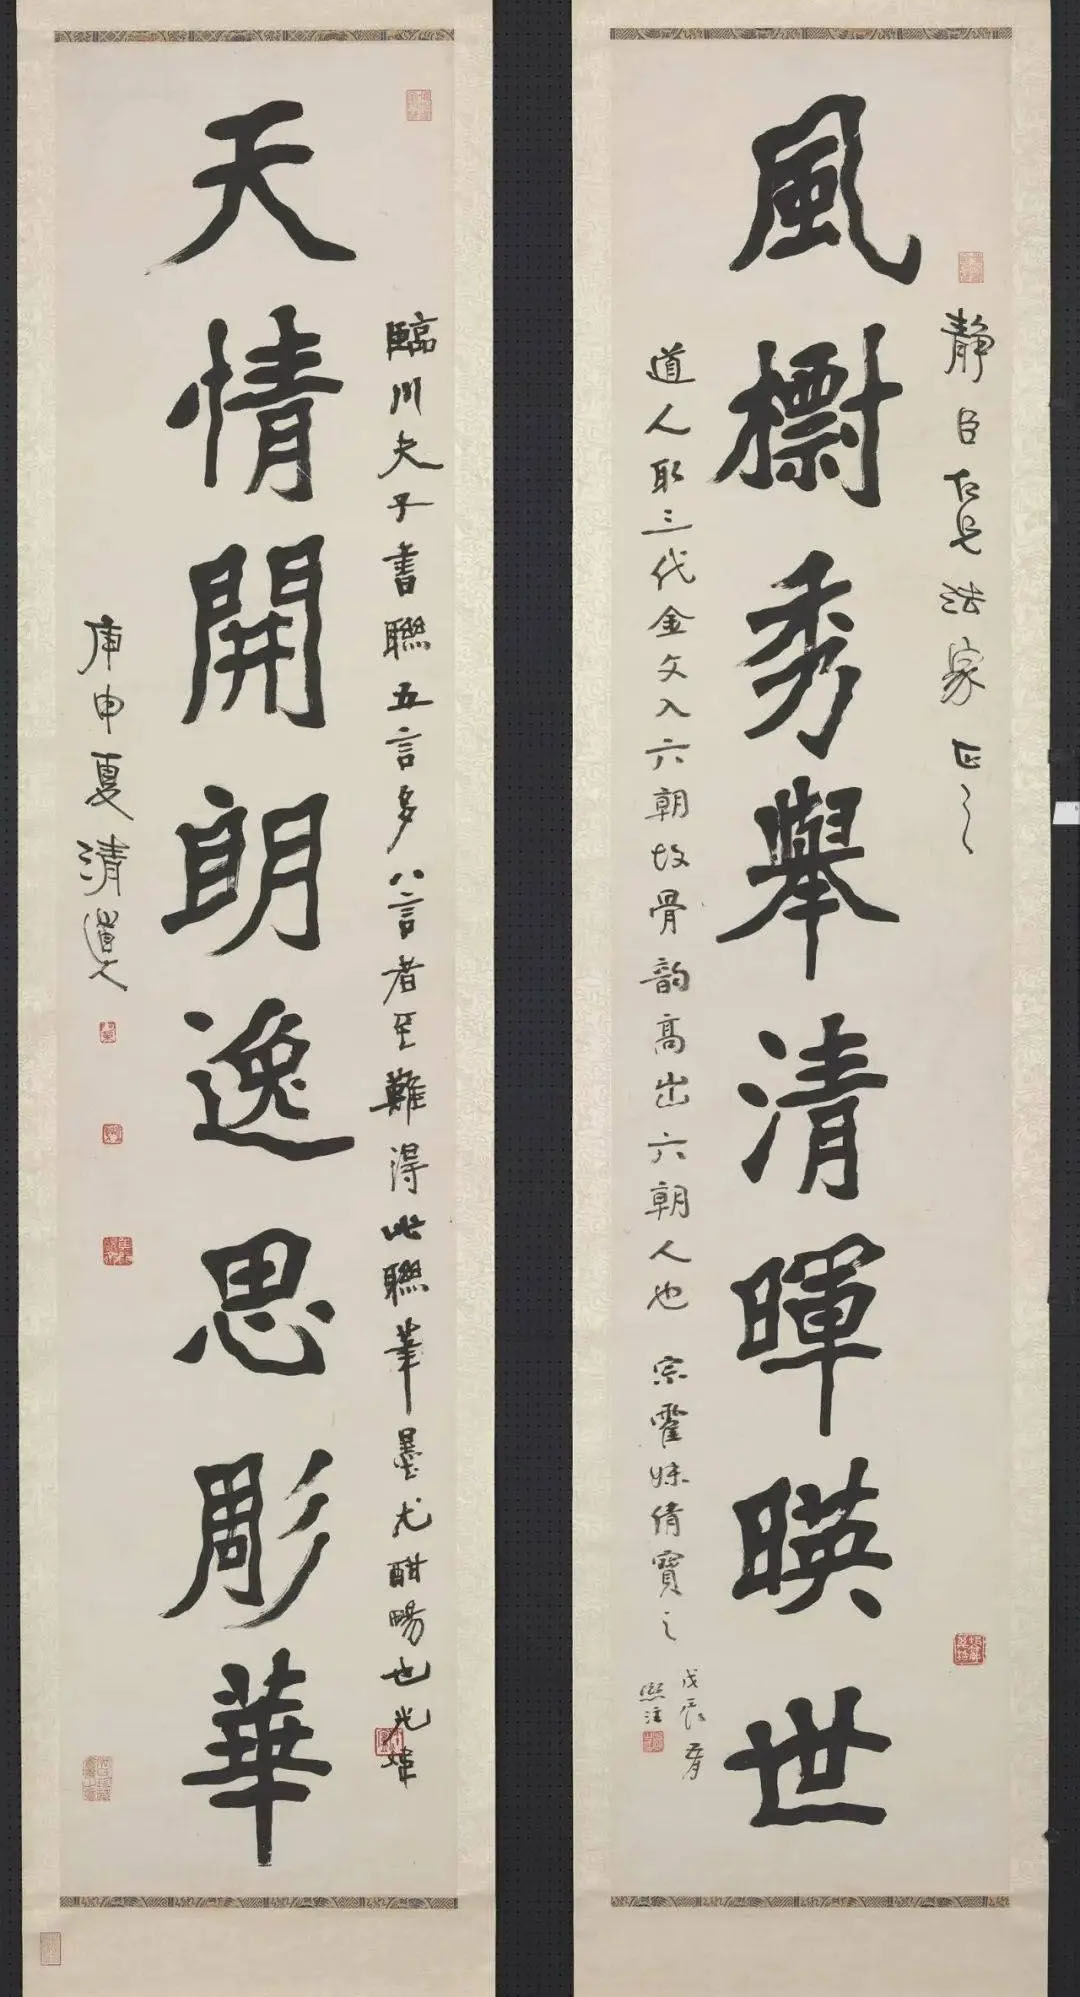 靜臣仁兄法家正之
風櫛秀舉清暉暎世
道人取三代金文入六朝故骨韵高出六朝人也 宗霍妹倩寶之
戊辰
熙注
臨川夫子書聯五言多八言者至難得此聯筆墨尤酣暢也光煒
天情開朗逸思彫華
庚申夏清道人